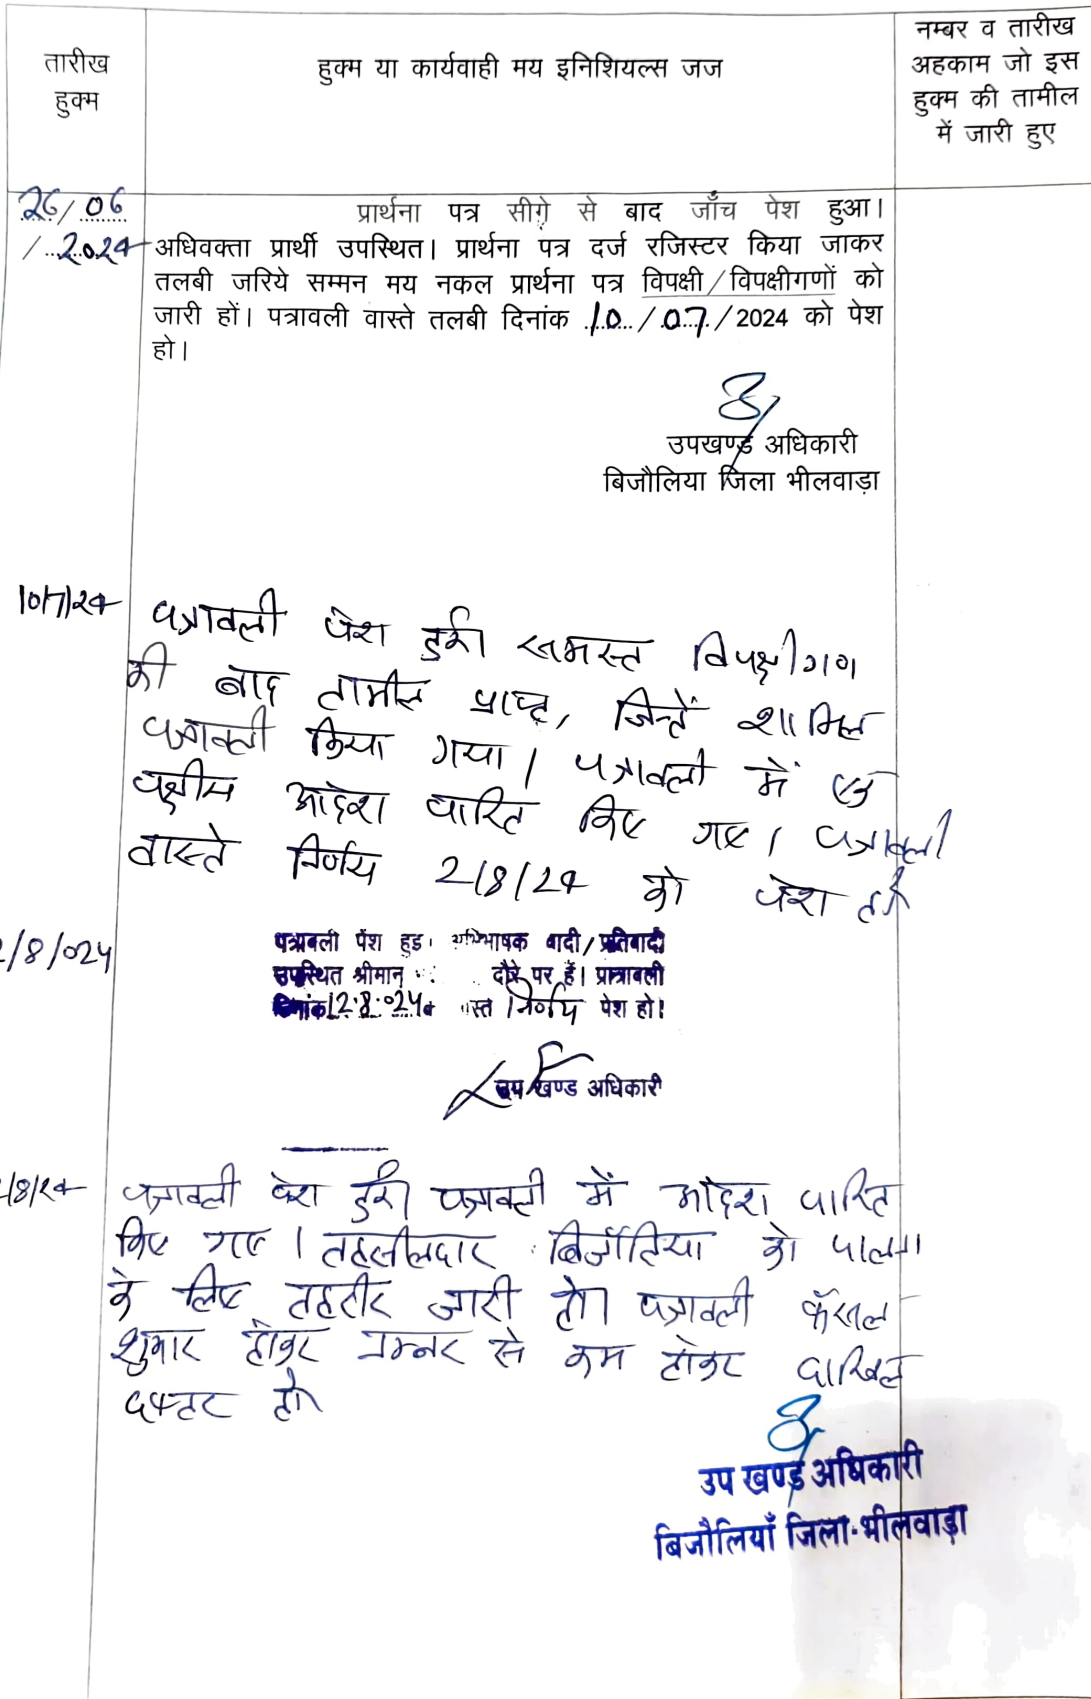 तारीख
हुक्म
हुक्म या कार्यवाही मय इनिशियल्स जज
नम्बर व तारीख
अहकाम जो इस
हुक्म की तामील
में जारी हुए
26/06
/2024
प्रार्थना पत्र सीगे़ से बाद जाँच पेश हुआ।
अधिवक्ता प्रार्थी उपस्थित। प्रार्थना पत्र दर्ज रजिस्टर किया जाकर
तलबी जरिये सम्मन मय नकल प्रार्थना पत्र विपक्षी/विपक्षीगणों को
जारी हों। पत्रावली वास्ते तलबी दिनांक 10/07/2024 को पेश
हो।
उपखण्ड अधिकारी
बिजौलिया जिला भीलवाड़ा
10/7/24
पत्रावली पेश हुई। समस्त विपक्षीगण
की बाद तामील प्राप्त, जिन्हें शामिल
पत्रावली किया गया। पत्रावली में एक
पक्षीय आदेश पारित किए गए। पत्रावली
वास्ते निर्णय 2/8/24 को पेश हो।
2/8/024
पत्रावली पेश हुइ। अभिभाषक वादी/प्रतिवादी
उपस्थित श्रीमान दौरे पर हैं। प्रात्रावली
दिनांक 12.8.024 स्त निर्णय पेश हो।
उप खण्ड अधिकारी
/8/24
पत्रावली पेश हुई। पत्रावली में आदेश पारित
किए गए। तहसीलदार बिजौलिया को पालना
के लिए तहरीर जारी हो। पत्रावली फैसल
शुमार होकर नम्बर से कम होकर दाखिल
दफ्तर हो।
उप खण्ड अधिकारी
बिजौलियाँ जिला-भीलवाड़ा